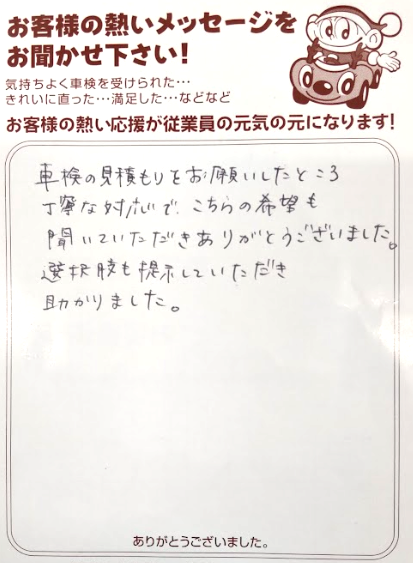 お客様の熱いメッセージを
お聞かせ下さい!
気持ちよく車検を受けられた…
きれいに直った…満足した…などなど
お客様の熱い応援が従業員の元気の元になります!
車検の見積もりをお願いしたところ
丁寧な対応で、こちらの希望も
聞いていただきありがとうございました。
選択肢も提示していただき
助かりました。
ありがとうございました。